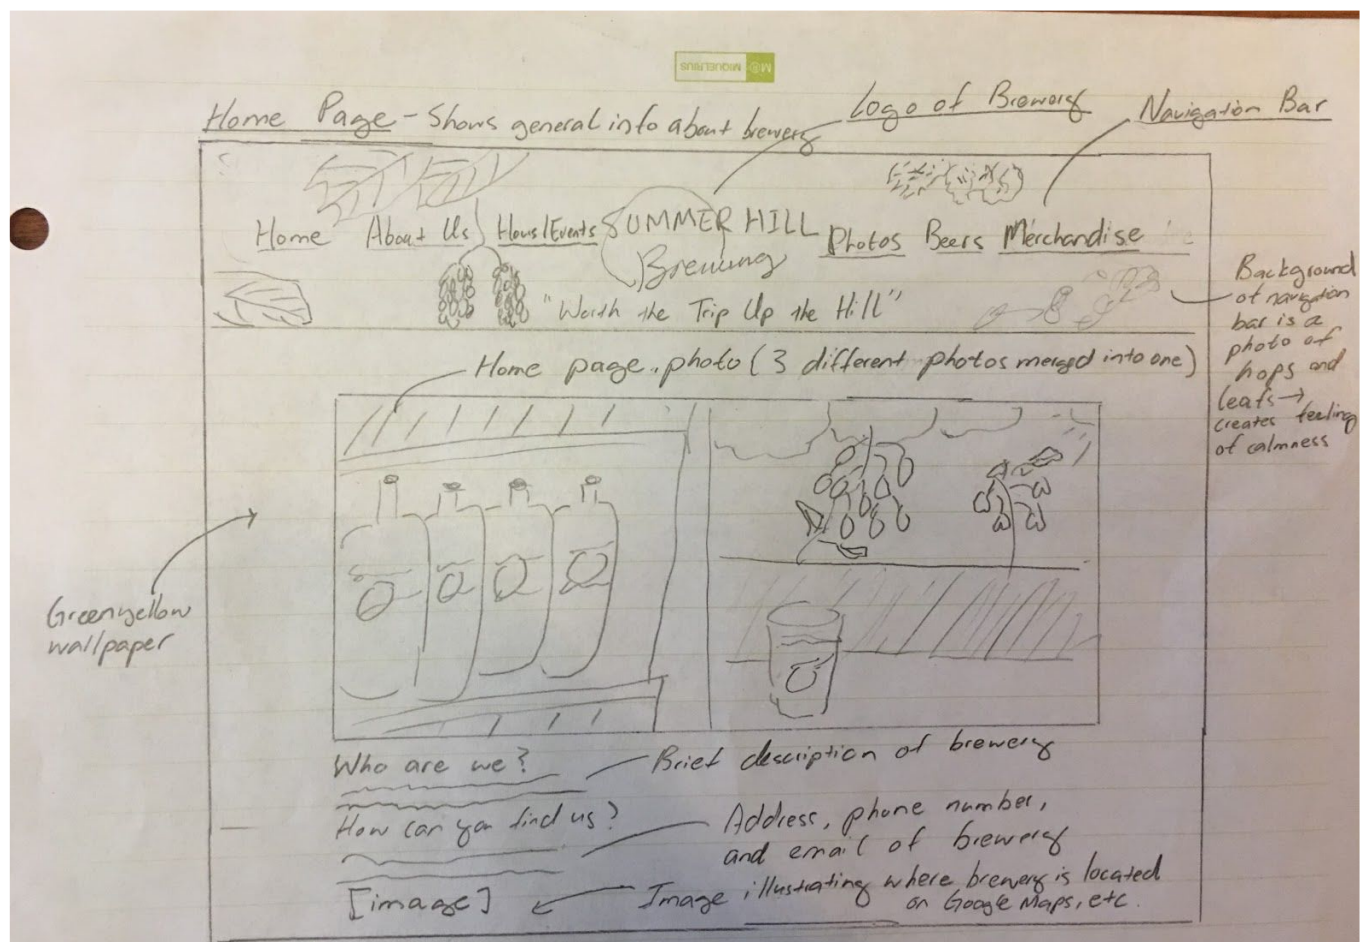 MIQUELRIUS
Home Page - Shows general info about brewery
Logo of Brewery
Navigation Bar
Home About Us Hours/Events SUMMER HILL Photos Beers Merchandise
Brewing
"Worth the Trip Up the Hill"
Background
of navigation
bar is a
photo of
hops and
leafs →
creates feeling
of calmness
Home page photo (3 different photos merged into one)
Greenyellow
wallpaper
Who are we?
Brief description of brewery
How can you find us?
Address, phone number,
and email of brewery
[image]
Image illustrating where brewery is located
on Google Maps, etc.